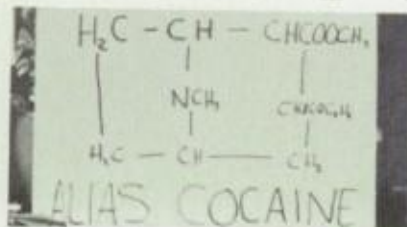 H₂C - CH - CHCOOCH₃
NCH₃
H₂C - CH - CH₂
ALIAS COCAINE